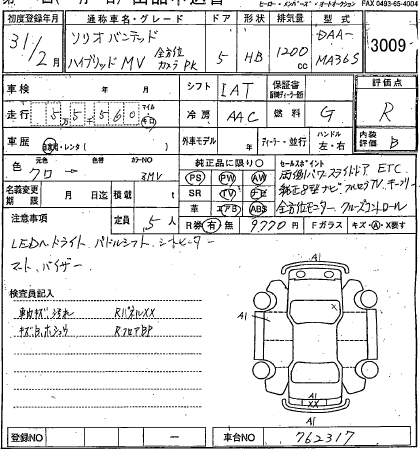 ヒーロー・メンバーズ・オートオークション FAX 0493-65-4004
初度登録年月 通称車名・グレード ドア 形状 排気量 型式
31/2月 ソリオバンデッド ハイブリッド MV 全方位カメラPK 5 HB 1200cc DAA-MA36S 3009
車検 年 月 シフト IAT 保証書 評価点
走行 55560 マイル 冷房 AAC 燃料 G R
車歴 自家用・レンタ( ) 外車モデル 年 ディーラー・並行 ハンドル 左・右 内装評価 B
色 元色 クロ → 色替 カラーNO ZMV
純正品に限り○ セールスポイント
PS PW AW 両側パワースライドドア ETC
名義変更期限 月 日迄 積載量 t
SR TV ナビ 純正8型ナビ フルセグTV
革 エアB ABS 全方位モニター クルーズコントロール
注意事項 定員 5人 R券 有 無 9770円 Fガラス キズ・A・X要す
LEDヘッドライト パドルシフト シートヒーター
マット、バイザー
検査員記入
車内キズ、汚れ RパネルXX
キズ、凹、ホシュウ RフロアBP
A1
X
A1
XX
A1
登録NO — 車台NO 762317